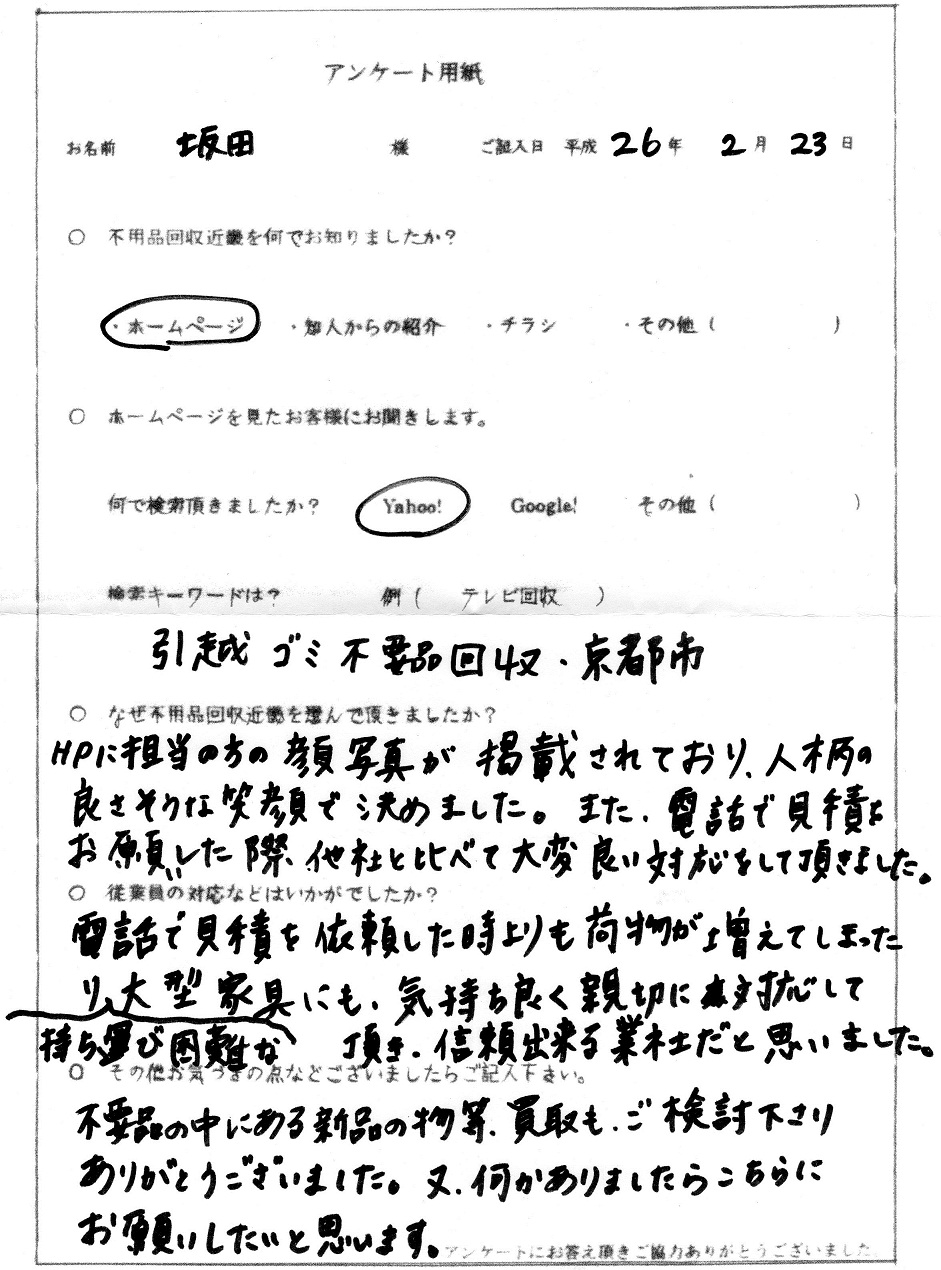 アンケート用紙
お名前 坂田 様 ご記入日 平成 26年 2月 23日
○ 不用品回収近畿を何でお知りましたか?
・ホームページ ・知人からの紹介 ・チラシ ・その他 ( )
○ ホームページを見たお客様にお聞きします。
何で検索頂きましたか? Yahoo! Google! その他 ( )
検索キーワードは? 例 ( テレビ回収 )
引越 ゴミ 不要品回収・京都市
○ なぜ不用品回収近畿を選んで頂きましたか?
HPに担当の方の顔写真が掲載されており、人柄の
良さそうな笑顔で決めました。また、電話で見積を
お願いした際、他社と比べて大変良い対応をして頂きました。
○ 従業員の対応などはいかがでしたか?
電話で見積を依頼した時よりも荷物が増えてしまった
り、大型家具にも、気持ち良く親切に対応して
持ち運び困難な 頂き、信頼出来る業社だと思いました。
○ その他お気づきの点などございましたらご記入下さい。
不要品の中にある新品の物等、買取も、ご検討下さり
ありがとうございました。又、何かありましたらこちらに
お願いしたいと思います。
アンケートにお答え頂きご協力ありがとうございました。